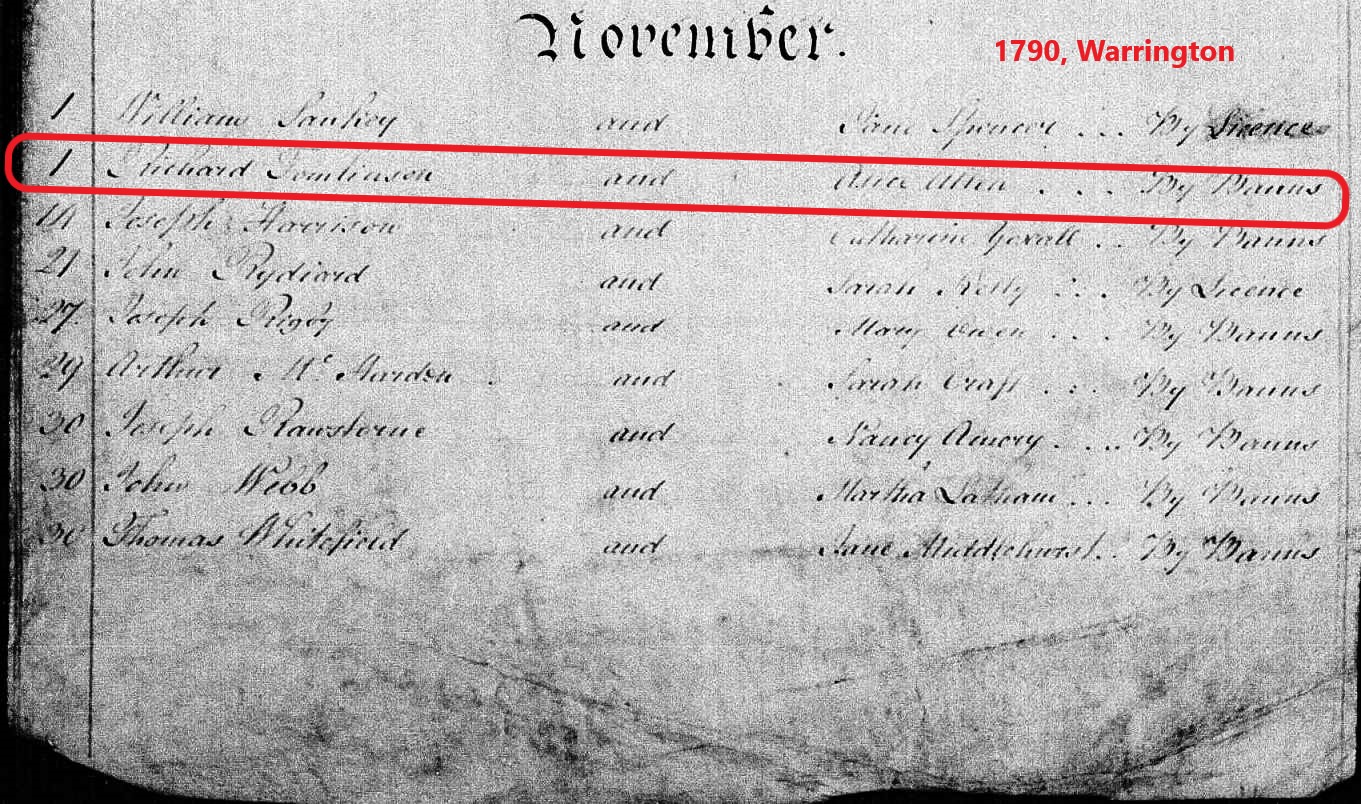 November.
1790, Warrington
1 William Sankey and Jane Spencer ... By Licence
1 Richard Tomlinson and Alice Allen . . . By Banns
14 Joseph Harrison and Catharine .. By Banns
21 John Rydiard and Sarah Kelly ... By Licence
27 Joseph Rigby and Mary Owen .... By Banns
29 Arthur Mc. and Sarah Craft ... By Banns
30 Joseph Rawstorne and Nancy Amory .... By Banns
30 John Webb and Martha Latham ... By Banns
30 Thomas Whitefield and Jane Middlehurst.. By Banns